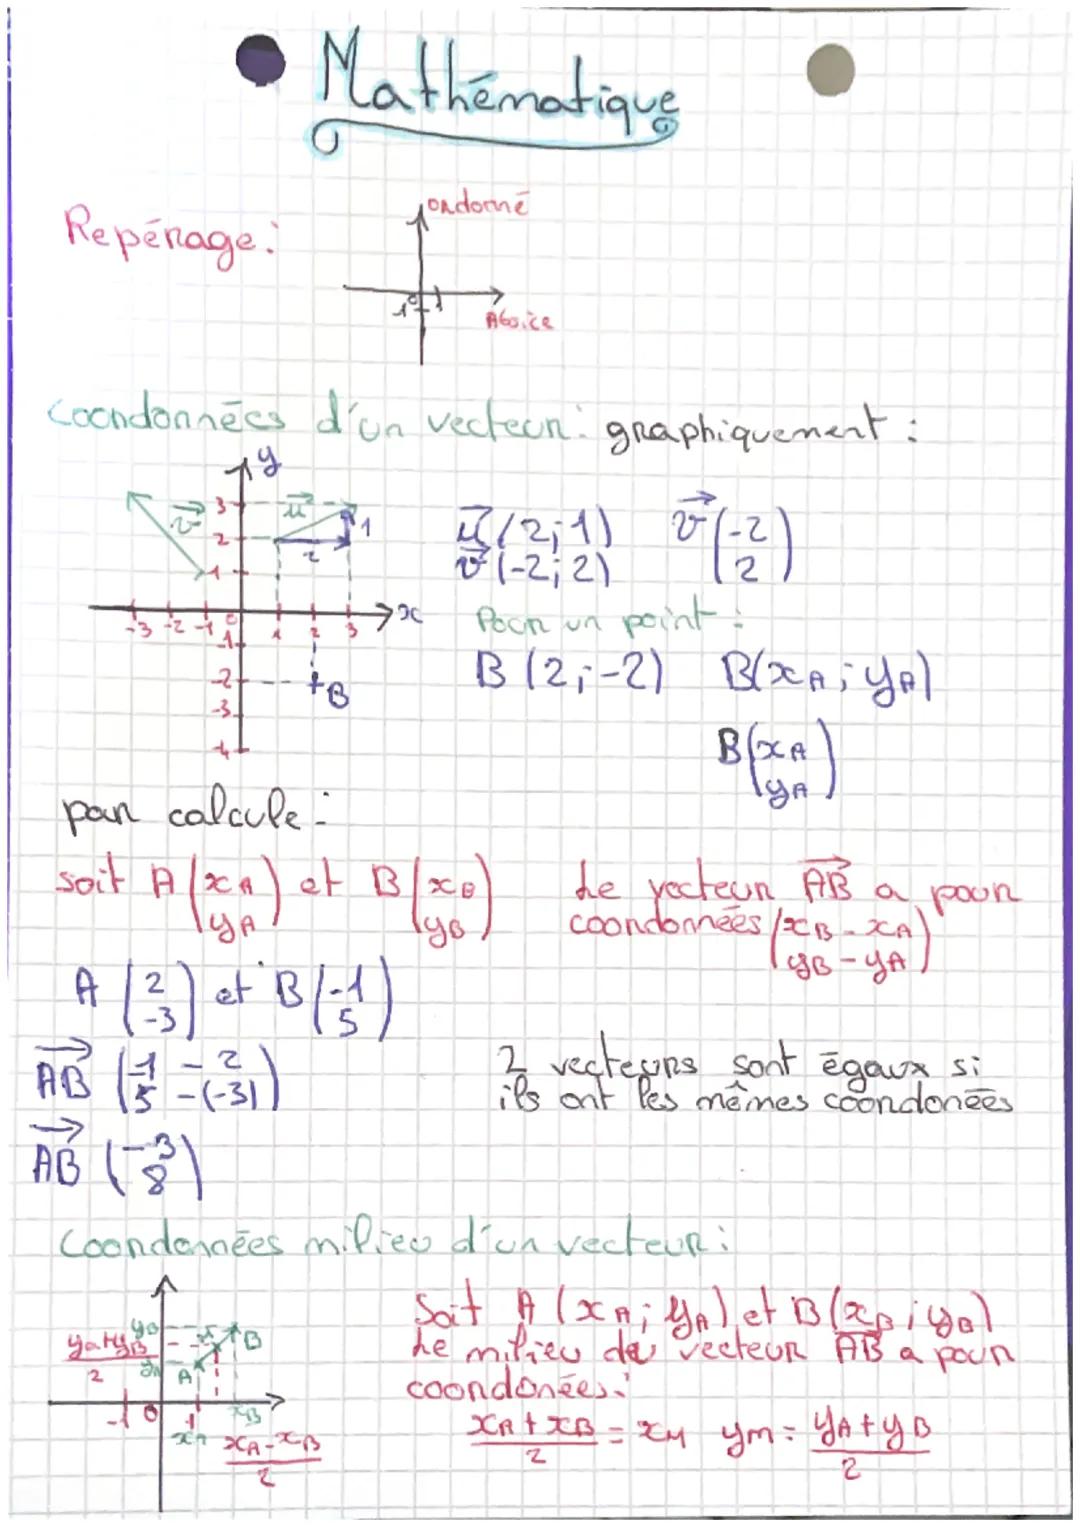 Mathématique
Repérage:
ordonné
0 1
1
Absice
Coordonnées d'un vecteur: graphiquement :
y
3
2
1
v
u
1
2
-3 -2 -1 0 1 2 3
x
-1
-2
-3
-4
B
u (2;1)
v (-2;2)
v (-2
2)
Pour un point :
B (2;-2) B(xA;yA)
B(xA
yA)
par calcule :
soit A (xA
yA) et B (xB
yB)
Le vecteur AB a pour
coordonnées (xB - xA
yB - yA)
A (2
-3) et B (-1
5)
AB (-1 - 2
5 -(-3))
AB (-3
8)
2 vecteurs sont égaux si
ils ont les mêmes coordonées
Coordonnées milieu d'un vecteur :
yB
yA+yB
2
yA
A
B
-1 0 1
xA
xB
xA-xB
2
Soit A (xA;yA) et B(xB;yB)
Le milieu du vecteur AB a pour
coordonées:
xA+xB
2
= xM
yM =
yA+yB
2